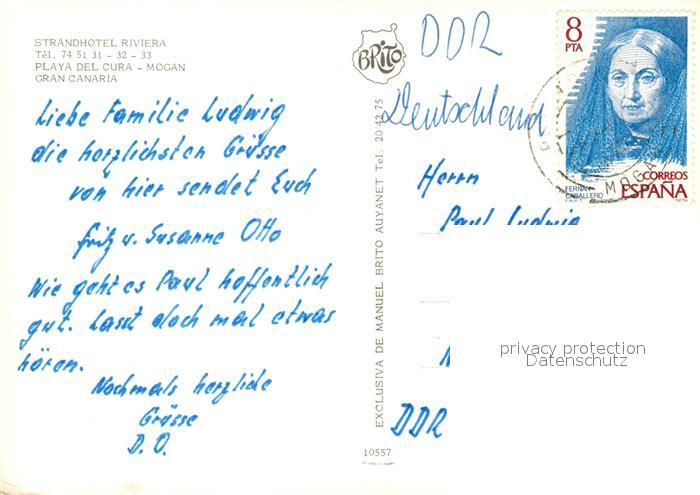 STRANDHOTEL RIVIERA
Tél. 74 51 31 - 32 - 33
PLAYA DEL CURA - MOGAN
GRAN CANARIA
Liebe Familie Ludwig
die herzlichsten Grüsse
von hier sendet Euch
Fritz u. Susanne Otto
Wie geht es Paul hoffentlich
gut. Lasst doch mal etwas
hören.
Nochmals herzliche
Grüsse
D. O.
BRITO
EXCLUSIVA DE MANUEL BRITO AUYANET Tel. 20 42 75
10557
DDR
Deutschland
8
PTA
FERNAN
CABALLERO
F.N.M.T.
CORREOS
ESPAÑA
1979
MOGAN
Herrn
Paul Ludwig
privacy protection
Datenschutz
DDR